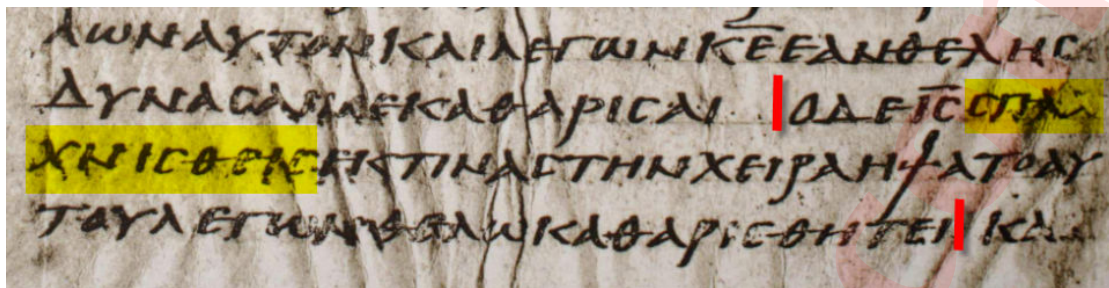 ΛΩΝΑΥΤΟΝΚΑΙΛΕΓΩΝΚ̅Ε̅ΕΑΝΘΕΛΗϹ
ΔΥΝΑϹΑΙΜΕΚΑΘΑΡΙϹΑΙ ΟΔΕΙ̅Ϲ̅ϹΠΛΑ
ΧΝΙϹΘΕΙϹΕΚΤΙΝΑϹΤΗΝΧΕΙΡΑΗΨΑΤΟΑΥ
ΤΟΥΛΕΓΩΝΘΕΛΩΚΑΘΑΡΙϹΘΗΤΕΙ ΚΑΙ